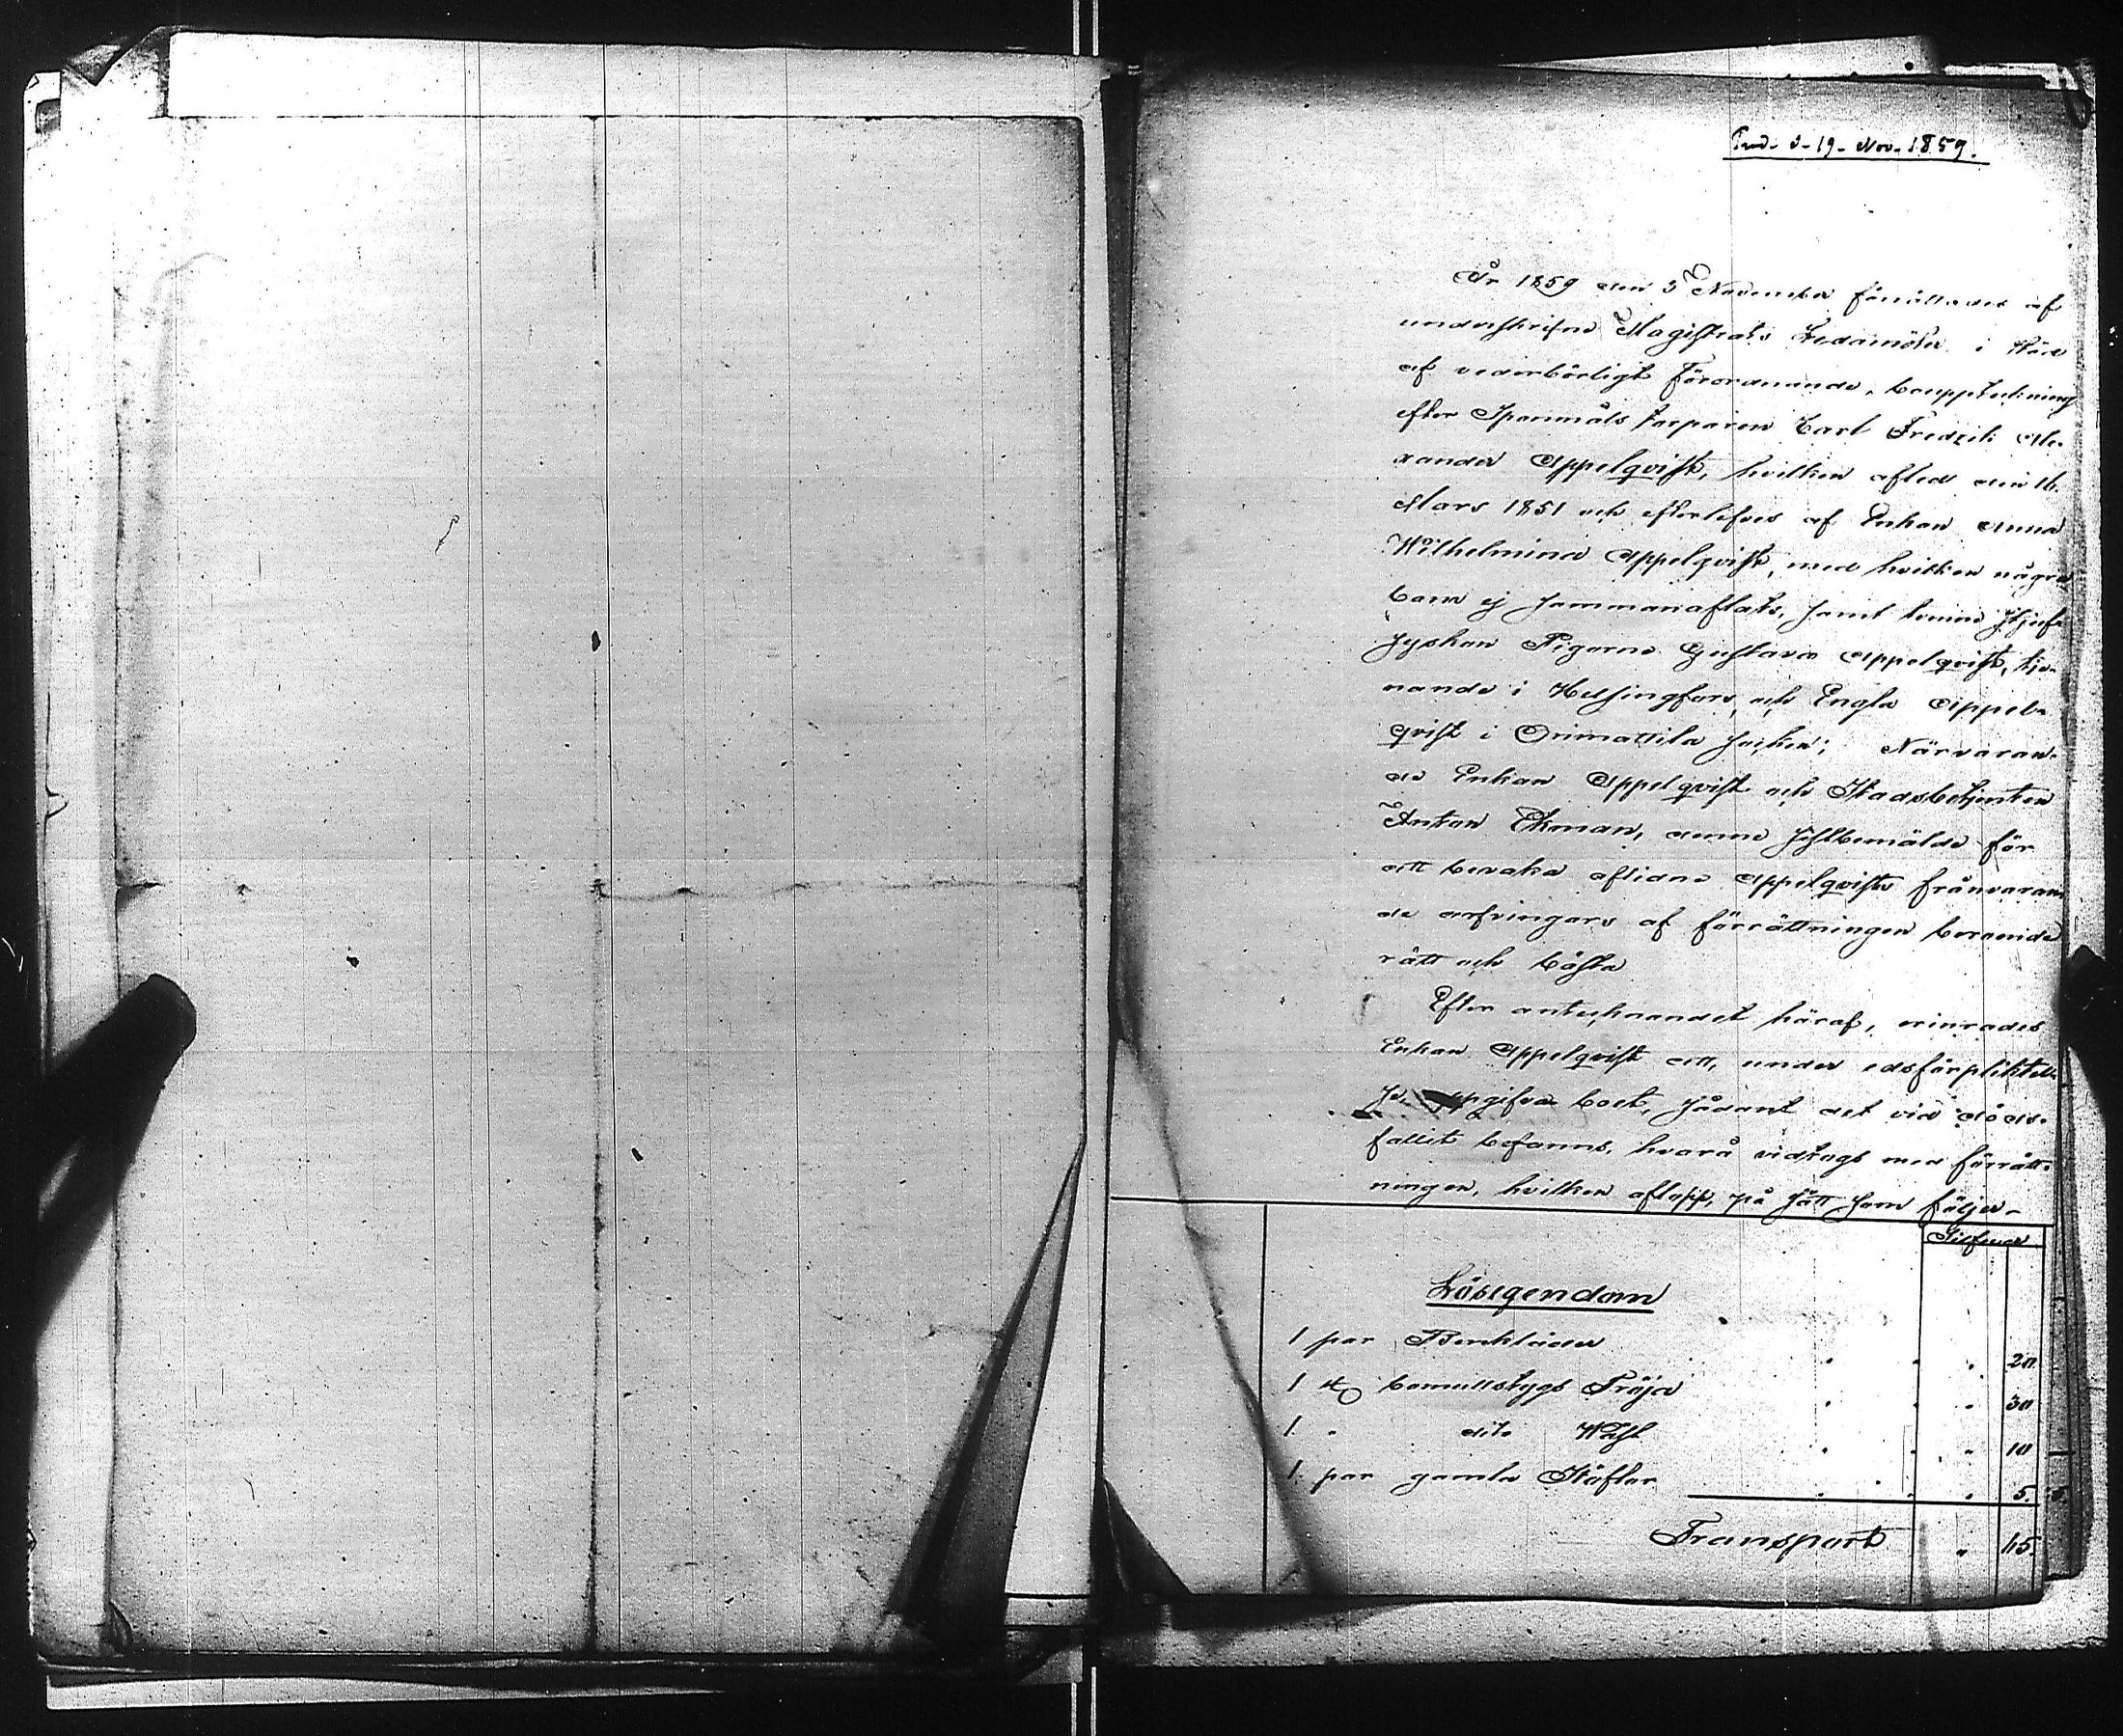 Prod. d. 19. Nov. 1859.
År 1859 den 5 November förrättades af
underskrifne Magistrats Ledamöter i stöd
af vederbörligt förordnande, bouppteckning
efter Spanmåls Torparen Carl Fredrik Ale-
xander Appelqvist, hvilken afled den 16.
Mars 1851 och efterlefves af Enkan Anna
Wilhelmina Appelqvist, med hvilken några
barn ej sammanaflats, samt tvenne styf-
syskon Pigorna Gustava Appelqvist, tje-
nande i Helsingfors, och Engla Appel-
qvist i Orimattila socken; Närvaran-
de Enkan Appelqvist och Stadsbetjenten
Anton Ekman, denne sistbemälde för
att bevaka aflidne Appelqvists frånvaran-
de arfvingars af förrättningen beroende
rätt och bästa
Efter antecknandet häraf, erinrades
Enkan Appelqvist att, under edsförpliktel-
se, uppgifva boet, sådant det vid döds-
fallet befanns, hvarå vidtogs med förrätt-
ningen, hvilken aflopp, på sätt som följer.
Silfver
Lösegendom
1 par Benkläder . . . 20.
1 st bomullstygs Tröja . . . 30
1 " dito Wäst . . . 10
1 par gamla Stöflar . . . 5.
Transport " 65.